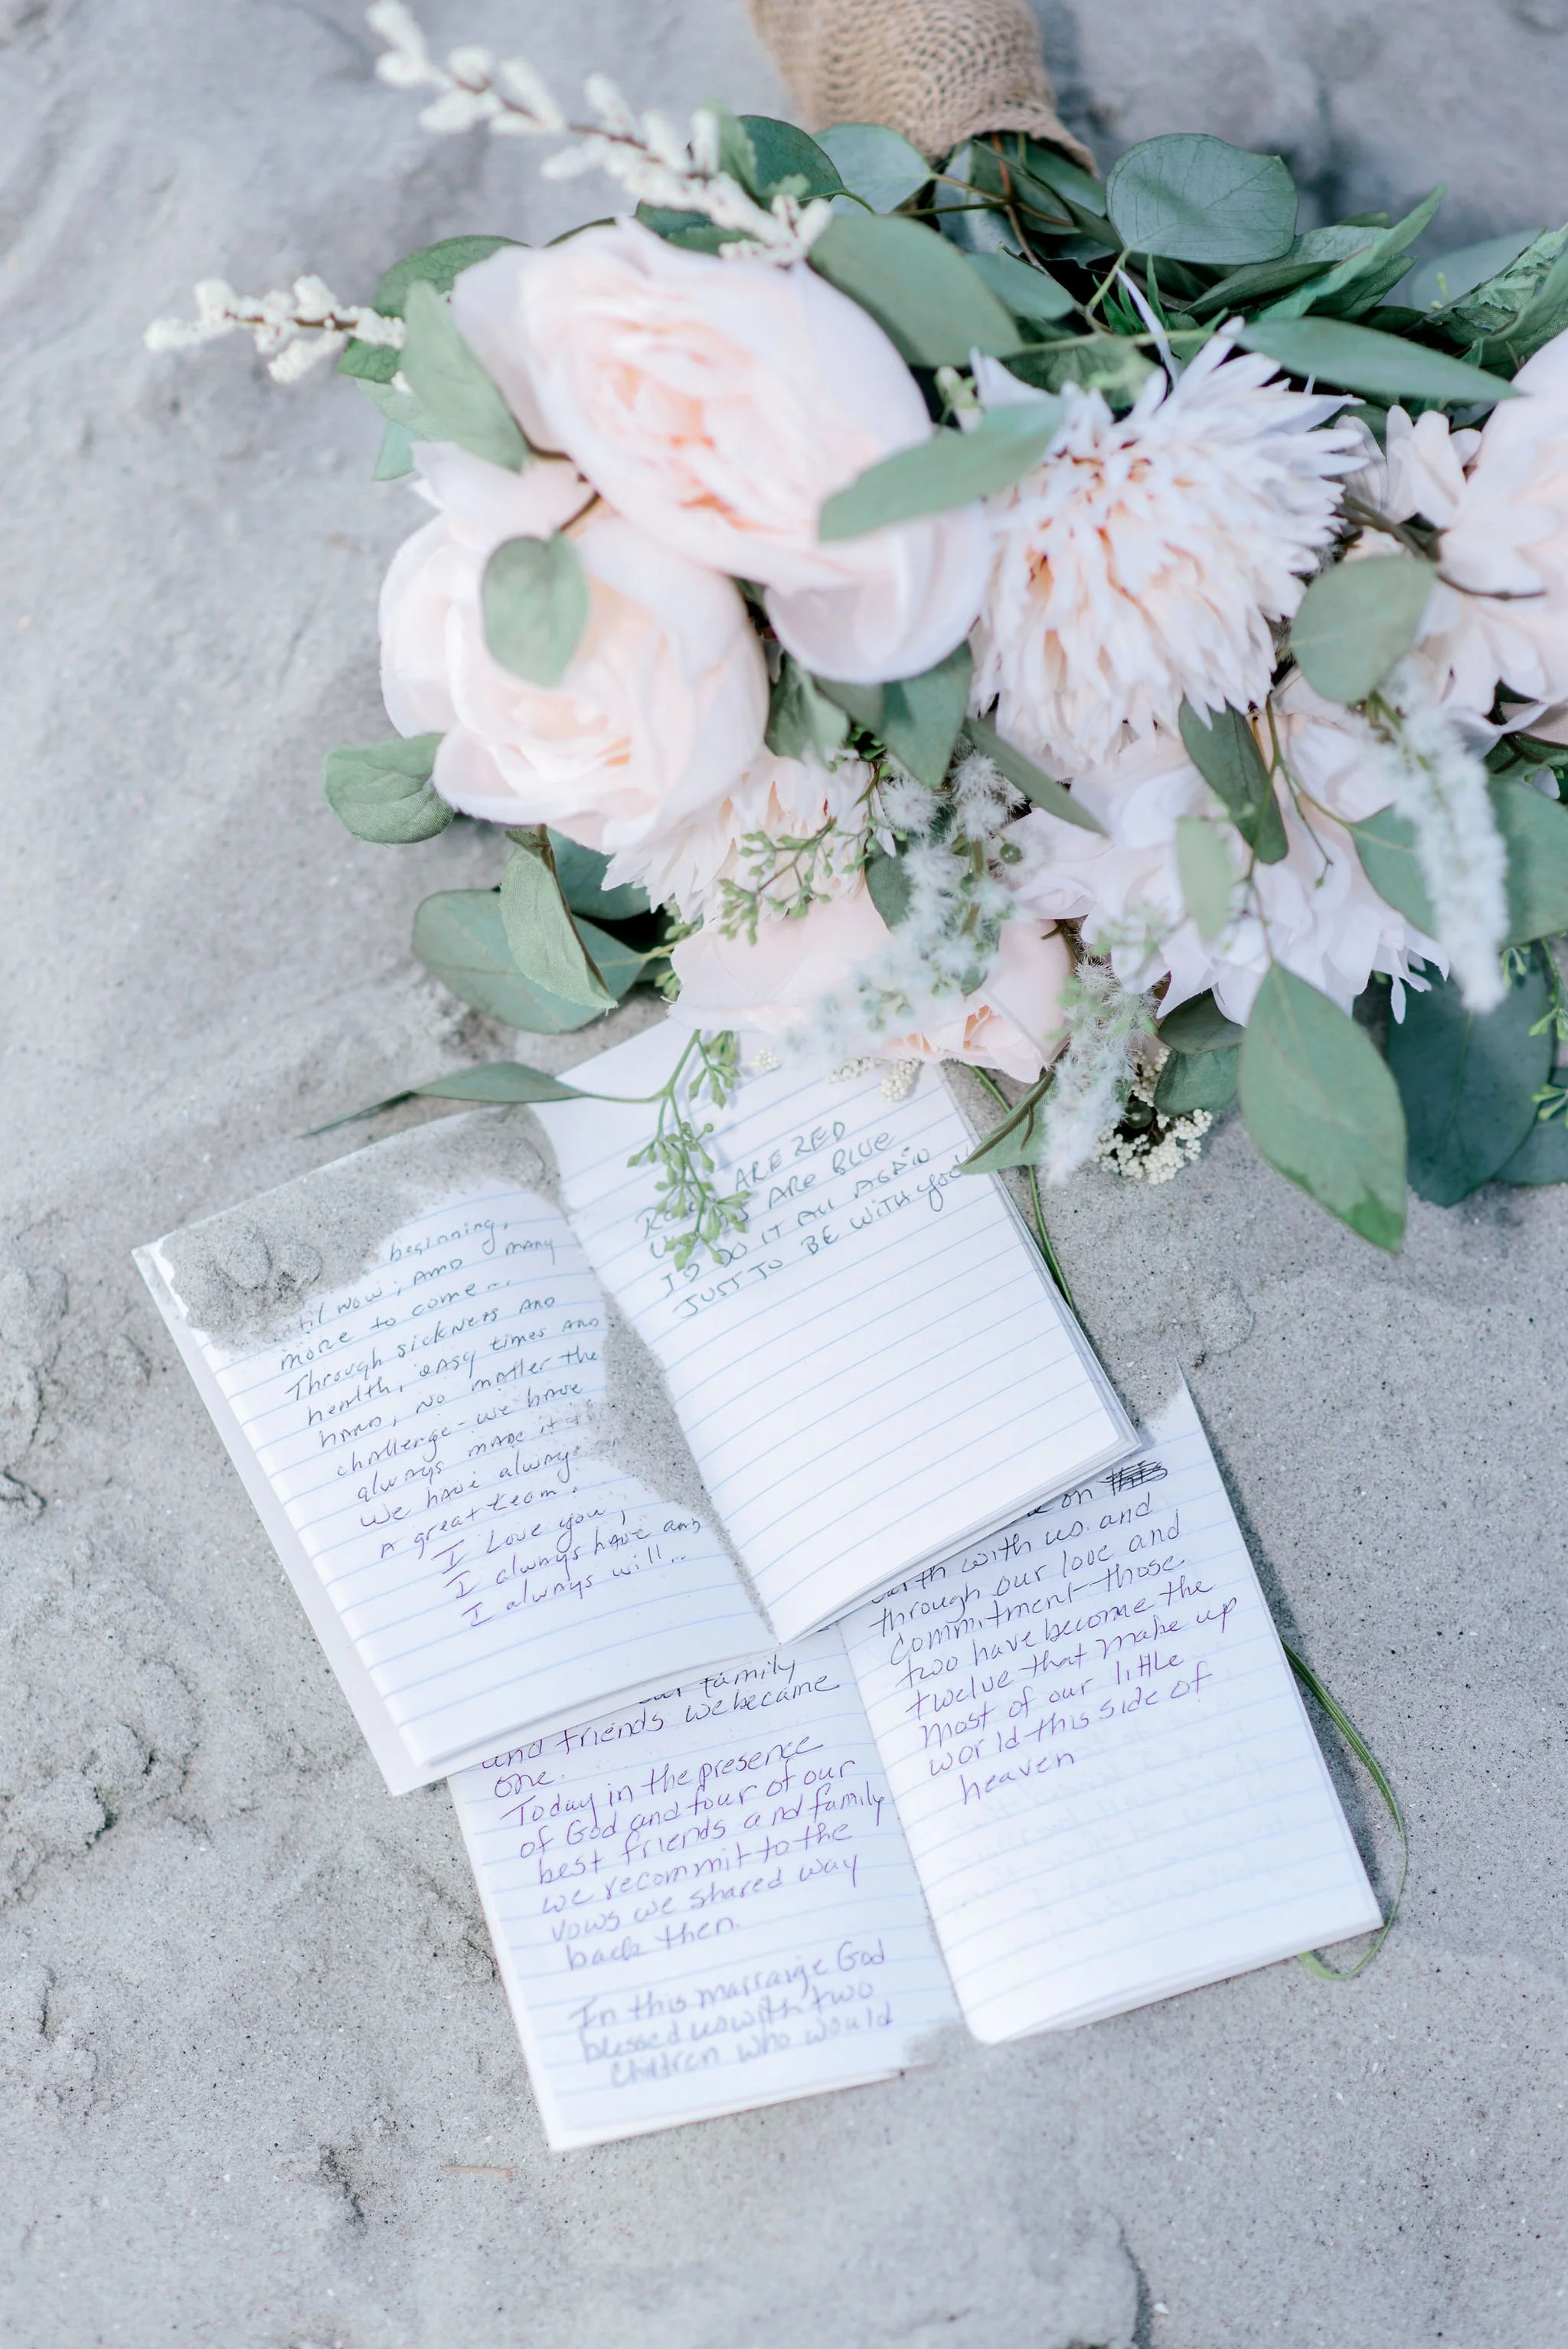 beginning,
until now, and many
more to come...
Through sickness and
health, easy times and
hard, no matter the
challenge - we have
always made it
We have always
a great team.
I Love you,
I always have and
I always will...
ARE RED
ARE BLUE
I'D DO IT ALL AGAIN
JUST TO BE WITH you!
our family
and friends we became
one.
Today in the presence
of God and four of our
best friends and family
we recommit to the
vows we shared way
back then.
In this marraige God
blessed us with two
children who would
on
earth with us and
through our love and
commitment those
two have become the
twelve that make up
most of our little
world this side of
heaven